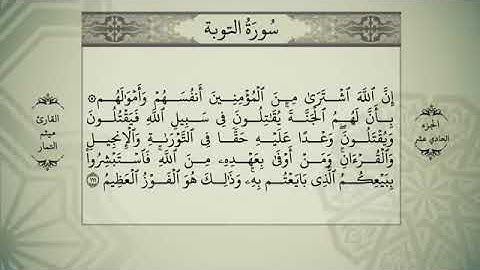 سُورَةُ التوبة
إِنَّ ٱللَّهَ ٱشْتَرَىٰ مِنَ ٱلْمُؤْمِنِينَ أَنفُسَهُمْ وَأَمْوَٰلَهُم
بِأَنَّ لَهُمُ ٱلْجَنَّةَ يُقَٰتِلُونَ فِى سَبِيلِ ٱللَّهِ فَيَقْتُلُونَ
وَيُقْتَلُونَ وَعْدًا عَلَيْهِ حَقًّا فِى ٱلتَّوْرَىٰةِ وَٱلْإِنجِيلِ
وَٱلْقُرْءَانِ وَمَنْ أَوْفَىٰ بِعَهْدِهِۦ مِنَ ٱللَّهِ فَٱسْتَبْشِرُوا۟
بِبَيْعِكُمُ ٱلَّذِى بَايَعْتُم بِهِۦ وَذَٰلِكَ هُوَ ٱلْفَوْزُ ٱلْعَظِيمُ ١١١
الجزء
الحادي عشر
القارئ
ميثم
التمار